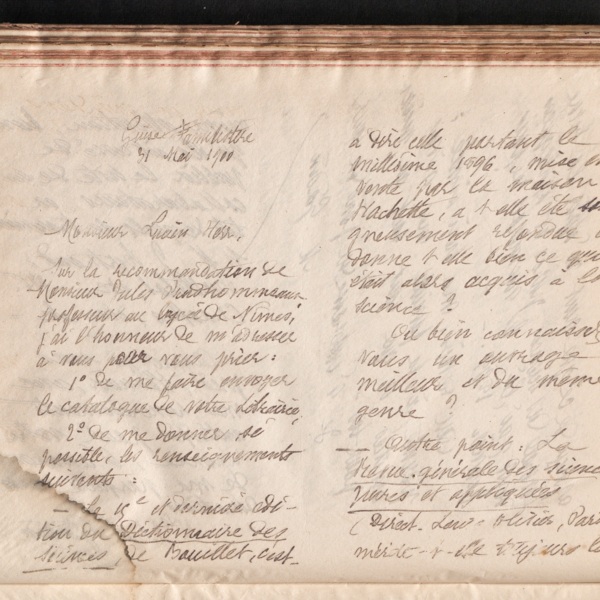 Guise Familistère
31 Mai 1900
Monsieur Lucien Herr,
Sur la recommandation de
Monsieur Jules Prudhommeaux
professeur au lycée de Nîmes,
j'ai l'honneur de m'adresser
à vous pour vous prier :
1º de me faire envoyer
le catalogue de votre librairie,
2º de me donner, si
possible, les renseignements
suivants :
— La 15e et dernière édi-
tion du Dictionnaire des
sciences, de Bouillet, c'est-
à dire celle portant le
millésime 1896, mise en
vente par la maison
Hachette, a-t-elle été soi
gneusement refondue,
donne-t-elle bien ce qui
était alors acquis à la
science ?
Ou bien connaissez
vous un ouvrage
meilleur et du même
genre ?
— Autre point : La
Revue générale des sciences
pures et appliquées
(Direct. Louis Olivier, Paris
mérite-t-elle toujours